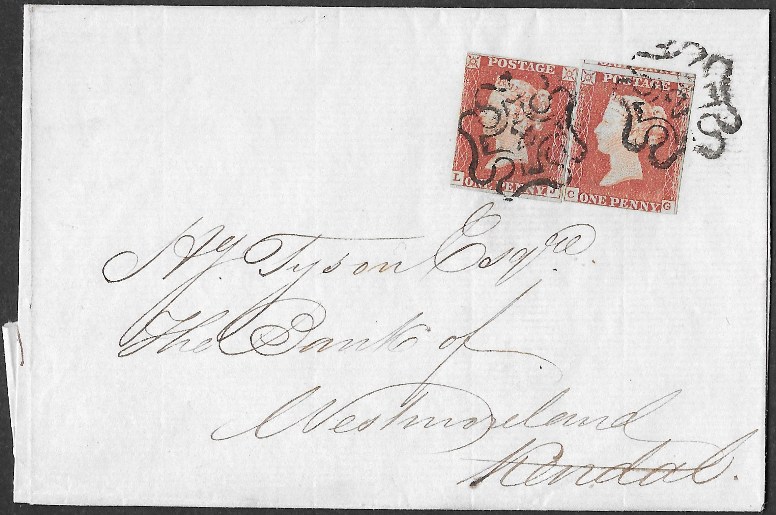 POSTAGE
ONE PENNY
L J
POSTAGE
ONE PENNY
C G
Hy. Tyson Esqre.
The Bank of
Westmoreland
Kendal.